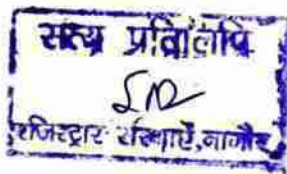 सत्य प्रतिलिपि
रजिस्ट्रार संस्थाएँ, नागौर